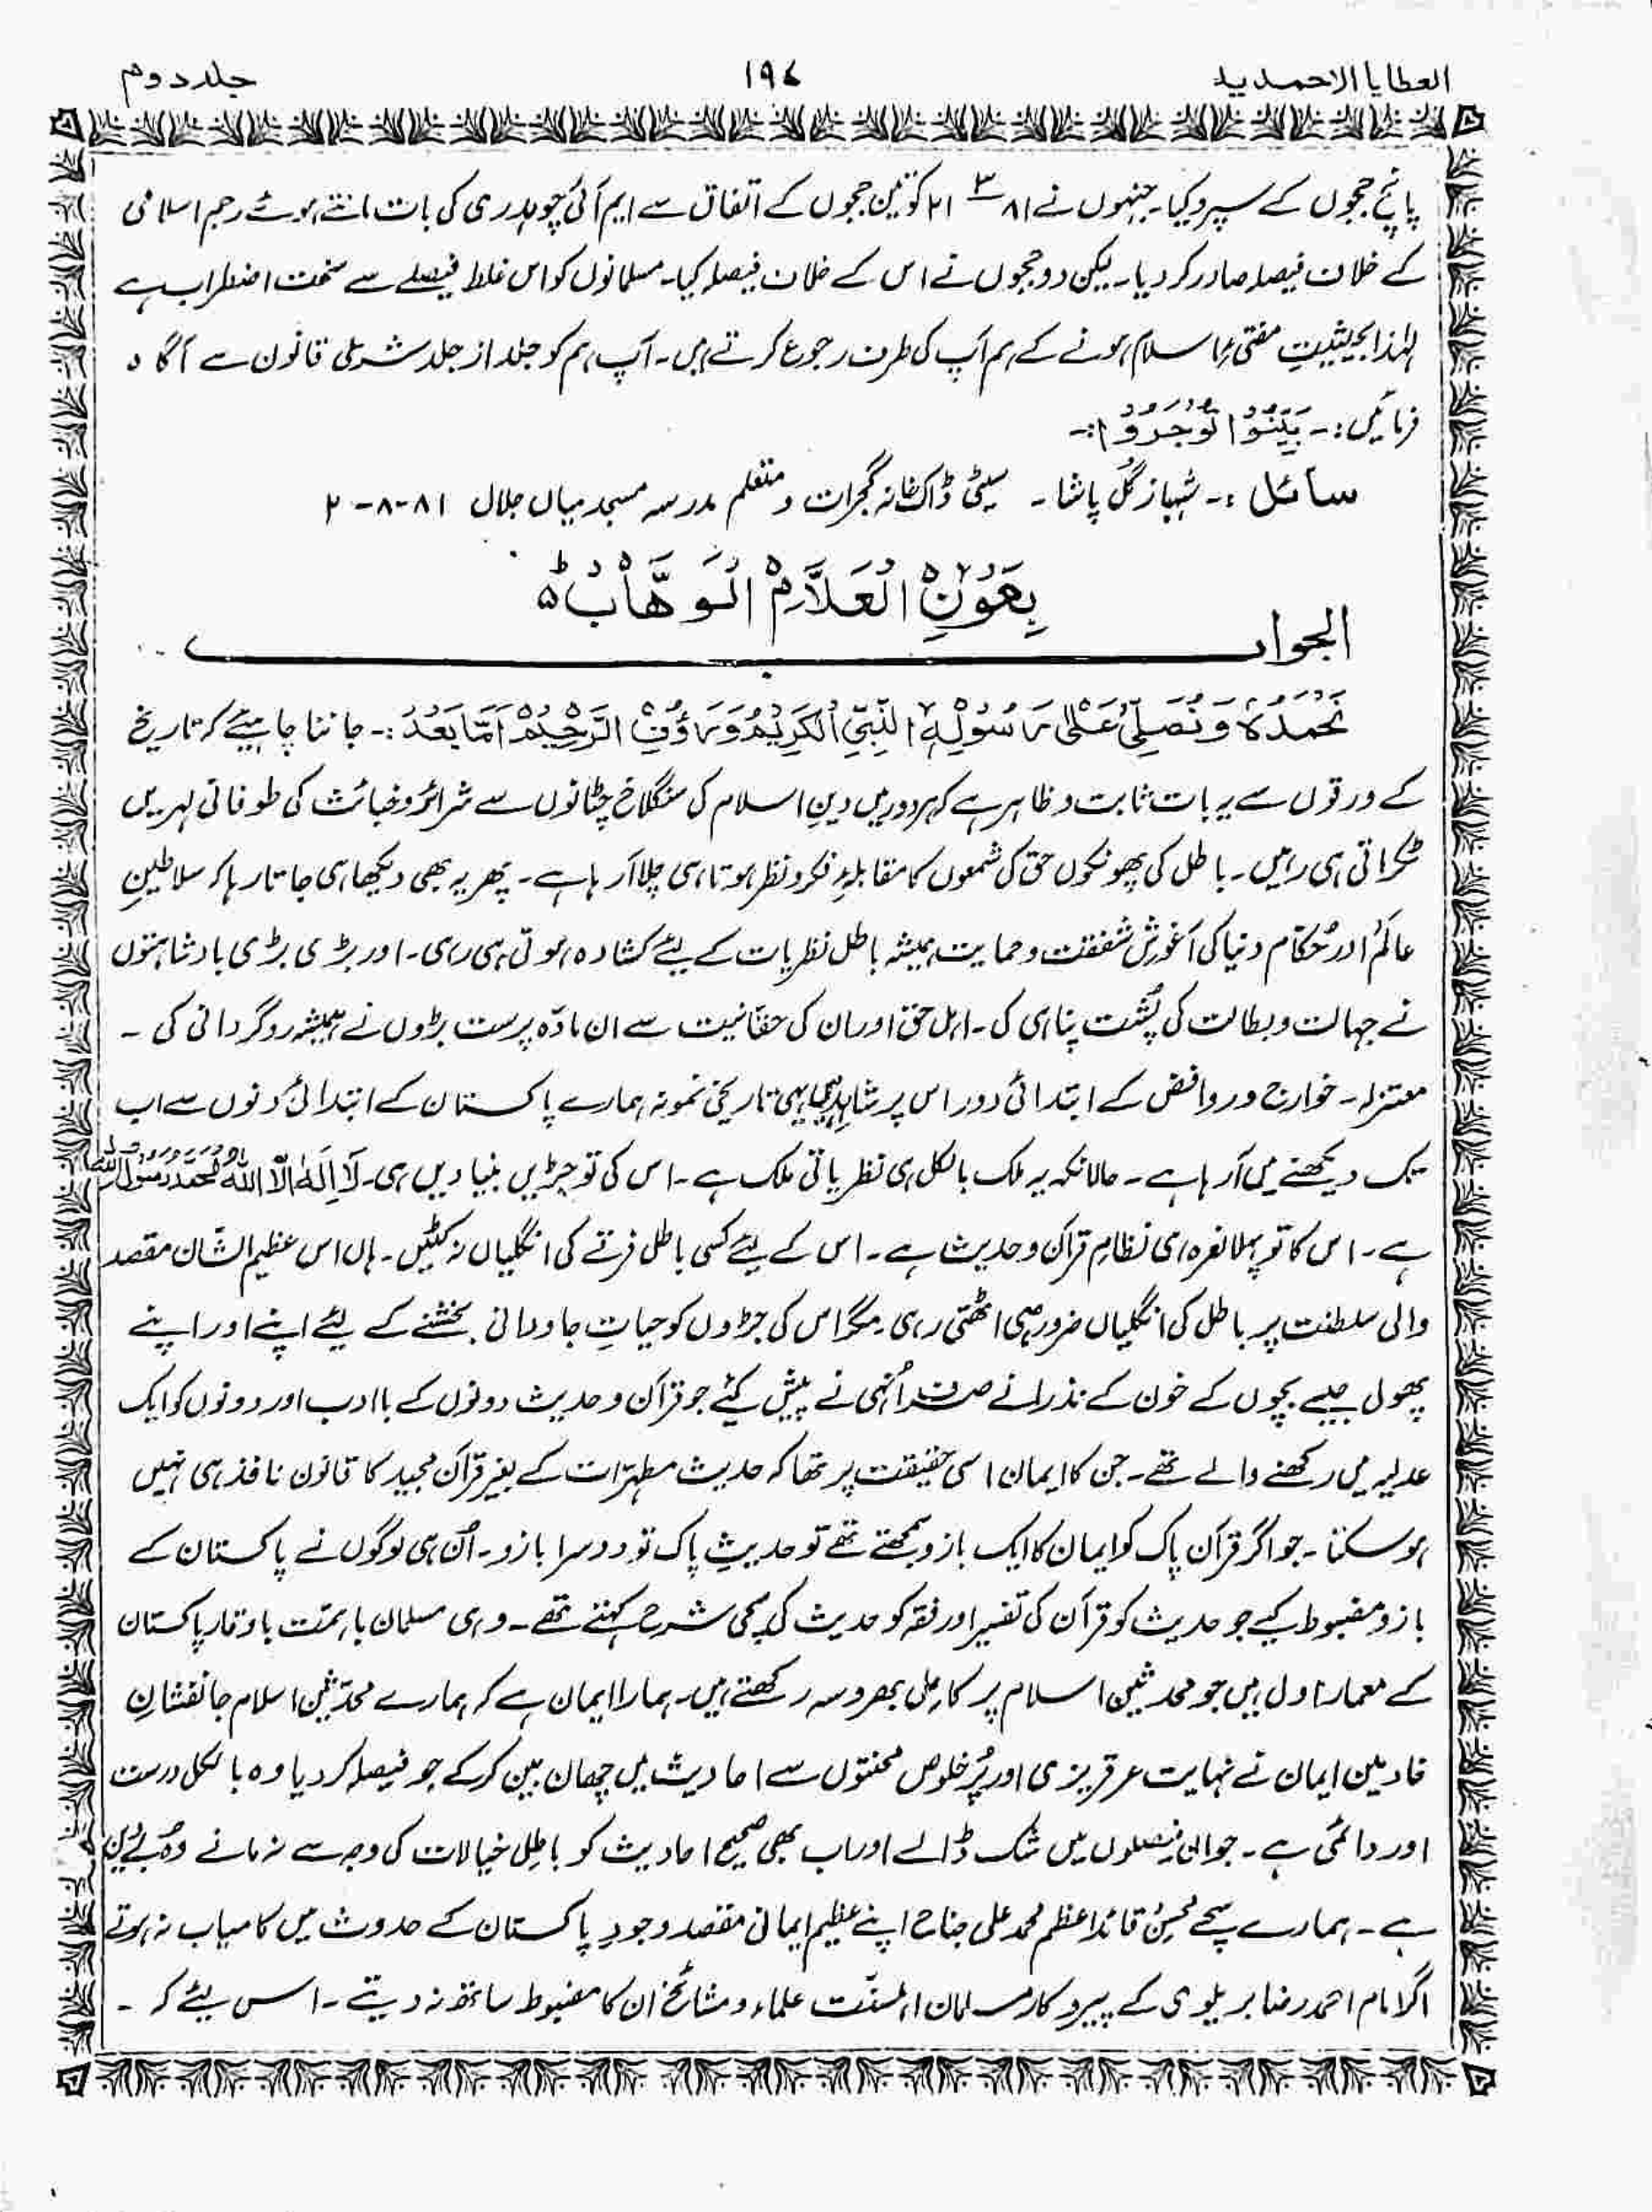 العطایا الاحمدیہ
۱۹۷
جلد دوم
پانچ ججوں کے سپرد کیا۔ جنہوں نے ۸۱-۳-۲۱ کو تین ججوں کے اتفاق سے ایم آئی چوہدری کی بات مانتے ہوئے رجم اسلامی
کے خلاف فیصلہ صادر کر دیا۔ لیکن دو ججوں نے اس کے خلاف فیصلہ کیا۔ مسلمانوں کو اس غلط فیصلے سے سخت اضطراب ہے
لہٰذا بحیثیتِ مفتیٔ اسلام ہونے کے ہم آپ کی طرف رجوع کرتے ہیں۔ آپ ہم کو جلد از جلد شرعی قانون سے آگاہ
فرمائیں:۔ بَیِّنُوْا تُوْجَرُوْا:۔
سائل :۔ شہباز گُل پاشا۔ سیٹی ڈاکخانہ گجرات و متعلم مدرسہ مسجد میاں جلال ۸۱-۸-۲
بِعَوْنِ الْعَلَّامِ الْوَھَّابْ ط ۵
الجواب
نَحْمَدُہٗ وَ نُصَلِّیْ عَلٰی رَسُوْلِہِ النَّبِیِّ الْکَرِیْمُ وَرَؤُفِ الرَّحِیْمْ اَمَّا بَعْدُ:۔ جاننا چاہیئے کہ تاریخ
کے ورقوں سے یہ بات ثابت و ظاہر ہے کہ ہر دور میں دینِ اسلام کی سنگلاخ چٹانوں سے شرائر و خبائث کی طوفانی لہریں
ٹکراتی ہی رہیں۔ باطل کی پھونکوں حق کی شمعوں کا مقابلۂ فکر و نظر ہوتا ہی چلا آ رہا ہے۔ پھر یہ بھی دیکھا ہی جاتا رہا کہ سلاطینِ
عالَمْ اور حُکّام دنیا کی آغوشِ شفقت و حمایت ہمیشہ باطل نظریات کے لیئے کشادہ ہوتی ہی رہی۔ اور بڑی بڑی بادشاہتوں
نے جہالت و بطالت کی پُشت پناہی کی۔ اہل حق اور ان کی حقانیت سے ان مادّہ پرست بڑوں نے ہمیشہ روگردانی کی ۔
معتزلہ۔ خوارج و روافض کے ابتدائی دور اس پر شاہد ہیں یہی تاریخی نمونہ ہمارے پاکستان کے ابتدائی دنوں سے اب
تک دیکھنے میں آ رہا ہے۔ حالانکہ یہ ملک بالکل ہی نظریاتی ملک ہے۔ اس کی تو جڑیں بنیادیں ہی۔ لَا اِلٰہَ اِلَّا اللہُ مُحَمَّدٌ رَّسُوْلُ اللہ
ہے۔ اس کا تو پہلا نعرہ ہی نظامِ قرآن و حدیث ہے۔ اس کے لیئے کسی باطل فرقے کی انگلیاں نہ کٹیں۔ ہاں اس عظیم الشّان مقصد
والی سلطنت پر باطل کی انگلیاں ضرور ہی اٹھتی رہی۔ مگر اس کی جڑوں کو حیاتِ جاودانی بخشنے کے لیئے اپنے اور اپنے
پھول جیسے بچوں کے خون کے نذرانے صرف اُنہی نے پیش کیئے جو قرآن و حدیث دونوں کے باادب اور دونوں کو ایک
عدلیہ میں رکھنے والے تھے۔ جن کا ایمان اسی حقیقت پر تھا کہ حدیث مطہرّات کے بغیر قرآن مجید کا قانون نافذ ہی نہیں
ہو سکتا۔ جو اگر قرآن پاک کو ایمان کا ایک بازو سمجھتے تھے تو حدیثِ پاک تو دوسرا بازو۔ اُن ہی لوگوں نے پاکستان کے
بازو مضبوط کیے جو حدیث کو قرآن کی تفسیر اور فقہ کو حدیث کی سچی شرح کہتے تھے۔ وہی مسلمان باہمّت باوقار پاکستان
کے معمارِ اول ہیں جو محدثین اسلام پر کاملی بھروسہ رکھتے ہیں۔ ہمارا ایمان ہے کہ ہمارے محدّثینِ اسلام جانفشانِ
خادمین ایمان نے نہایت عرقریزی اور پُرخلوص محنتوں سے احادیث میں چھان بین کرکے جو فیصلہ کر دیا وہ بالکل درست
اور دائمی ہے۔ جو ان فیصلوں میں شک ڈالے اور اب بھی صحیح احادیث کو باطِل خیالات کی وجہ سے نہ مانے وہ بے دین
ہے۔ ہمارے سچے محسِنْ قائد اعظم محمد علی جناح اپنے عظیم ایمانی مقصد وجودِ پاکستان کے حدوث میں کامیاب نہ ہوتے
اگر امام احمد رضا بریلوی کے پیروکار مسلمان اہلسنّت علماء و مشائخ ان کا مضبوط ساتھ نہ دیتے۔ اس لیئے کہ ۔